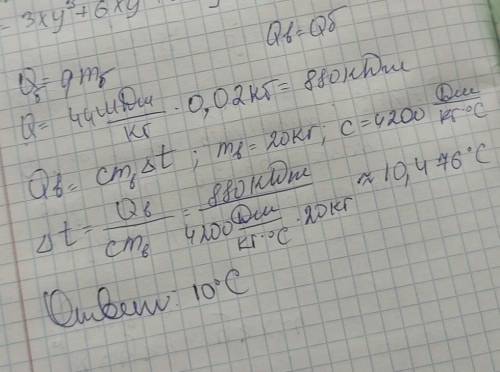 = 3xy³ + 6xy
Qв = Qб
Qб = qmб
Q = 44 МДж/кг · 0,02 кг = 880 кДж
Qв = cmвΔt ; mв = 20 кг ; c = 4200 Дж/кг·°C
Δt = Qв/cmв = 880 кДж/4200 Дж/кг·°C · 20 кг ≈ 10,476 °C
Ответ: 10°C